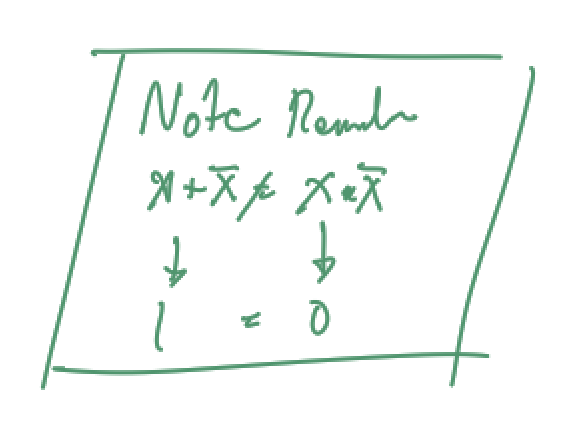 Note Remember
x + x̄ ≠ x • x̄
↓ ↓
1 = 0